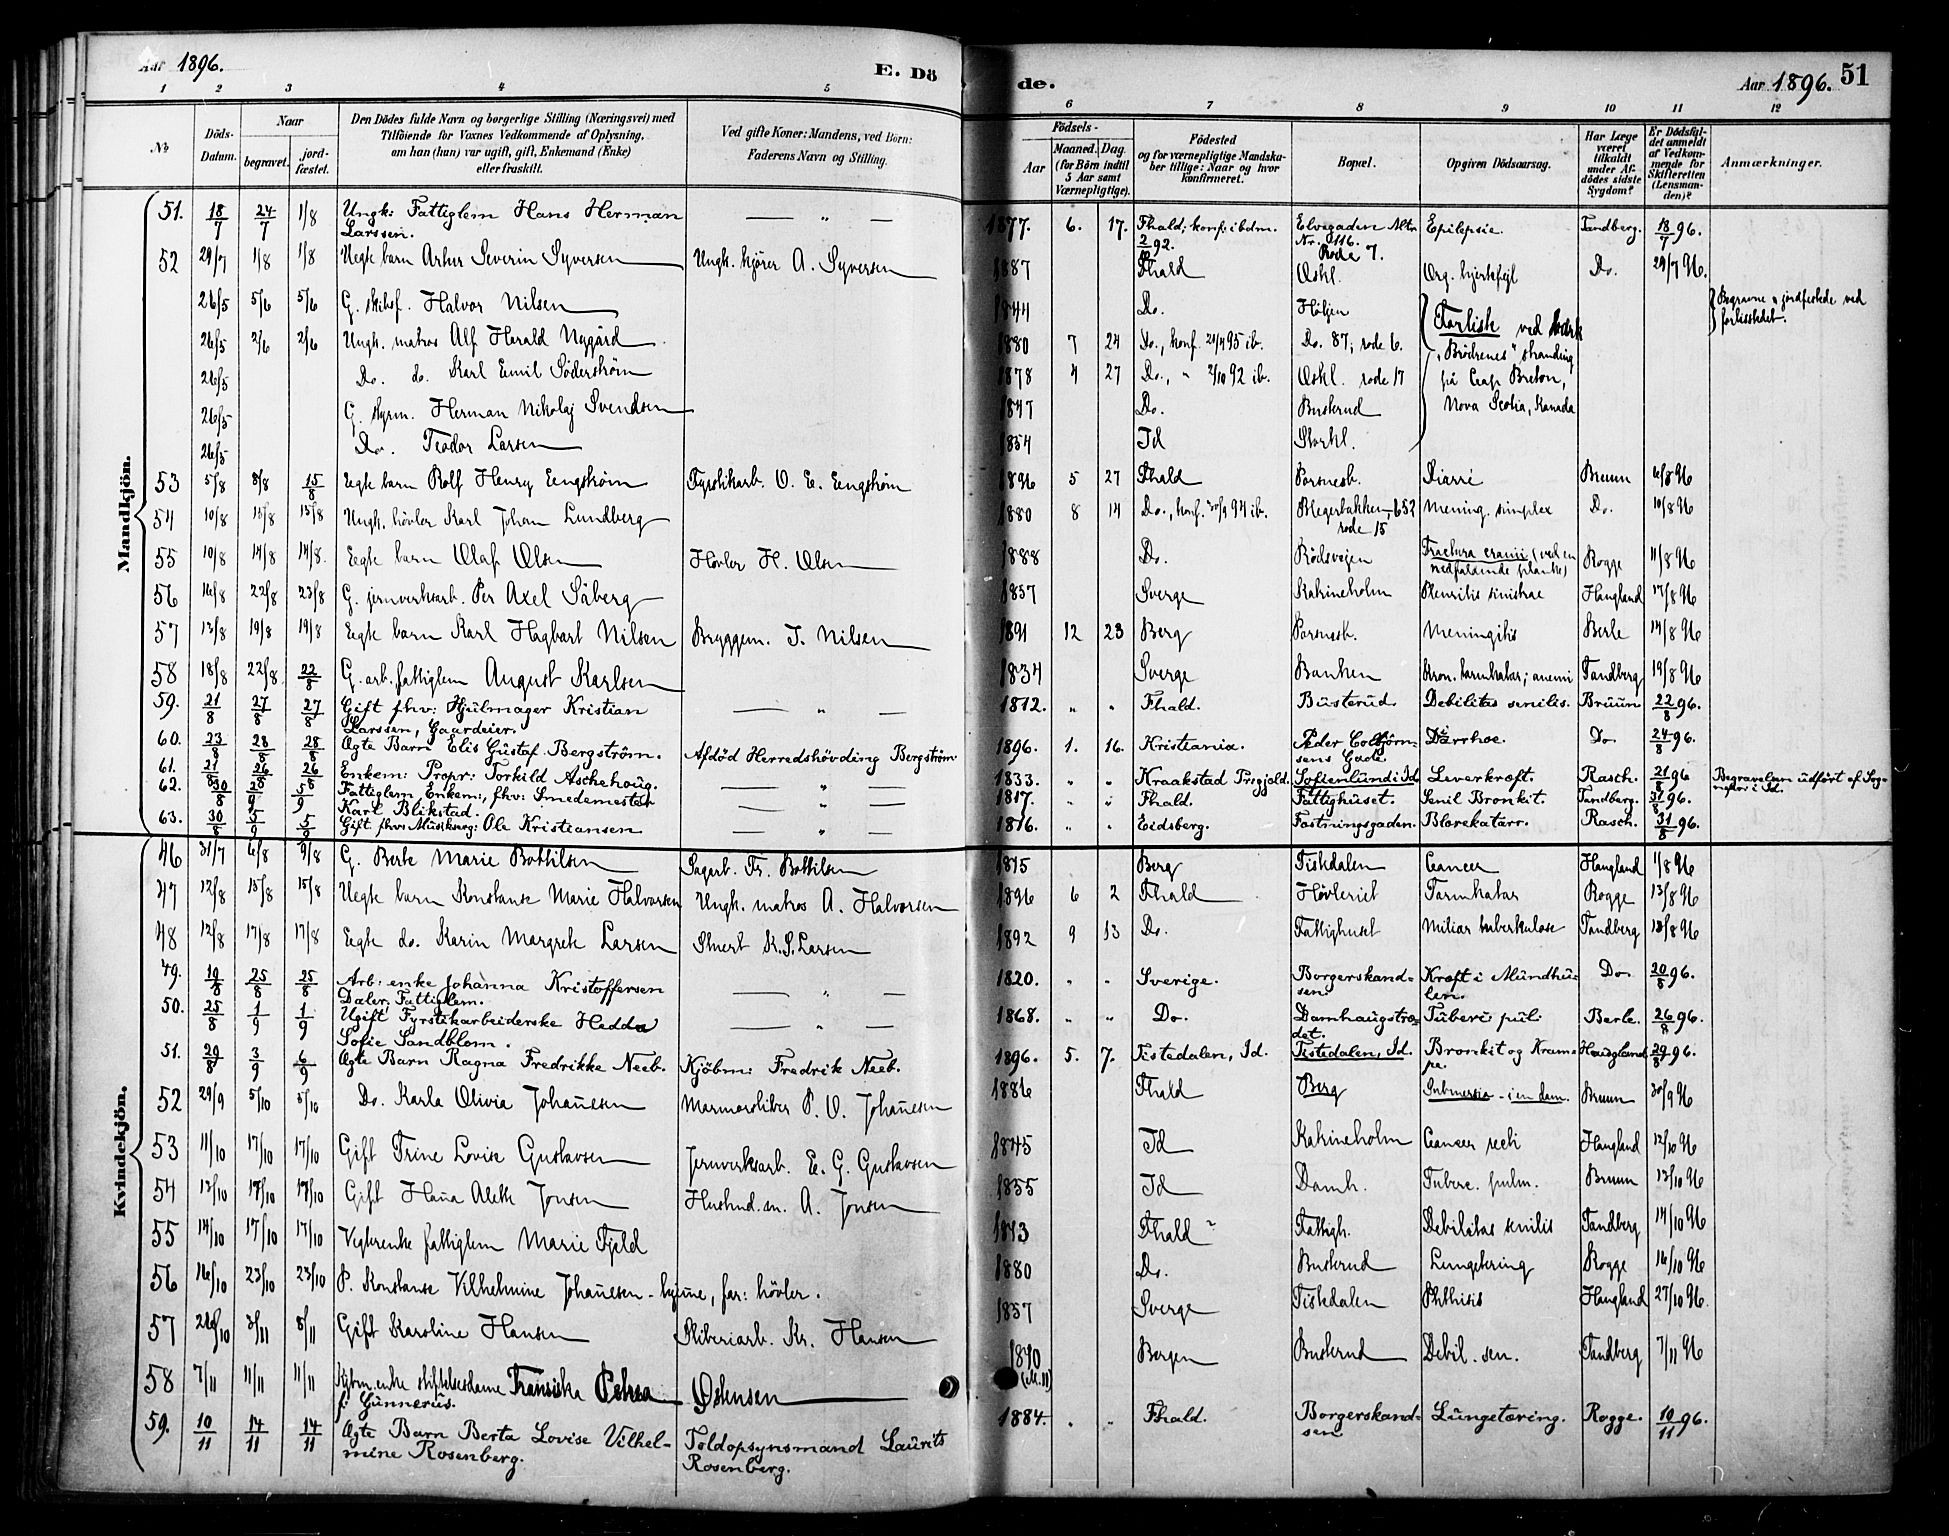 Aar 1896.
E. Dö
de.
Aar 1896.
51
1 2 3 4 5
6 7 8 9 10 11 12
No
Döds-Datum.
Naar
begravet.
jord-fæstet.
Den Dödes fulde Navn og borgerlige Stilling (Næringsvei) med
Tilföiende for Voxnes Vedkommende af Oplysning,
om han (hun) var ugift, gift, Enkemand (Enke)
eller fraskilt.
Ved gifte Koner: Mandens, ved Börn:
Faderens Navn og Stilling.
Födsels-
Aar
Maaned. Dag.
(for Börn indtil
5 Aar samt
Værnepligtige).
Födested
og for værnepligtige Mandska-
ber tillige: Naar og hvor
konfirmeret.
Bopæl.
Opgiven Dödsaarsag.
Har Læge
været
tilkaldt
under Af-
dödes sidste
Sygdom?
Er Dödsfal-
det anmeldt
af Vedkom-
mende for
Skifteretten
(Lensman-
den)?
Anmærkninger.
Mandkjön.
51. 18/7 24/7 1/8 Ungk: Fattiglem Hans Herman Larssen. — " — 1877. 6. 17. Fhald; konf: ibdm. 2/10 92. Elvegaden Mtr. Nr. 116. Rode 7. Epilepsie. Tandberg. 18/7 96.
52 29/7 1/8 1/8 Uegte barn Artur Severin Syversen Ungk. kjörer A. Syversen 1887 Fhald Oskl. Org. hjertefejl Do. 29/7 96.
26/5 5/6 5/6 G. skibsf. Halvor Nilsen 1844 Do. Höljen Forlist ved bark Begravne o. jordfestede ved forlisstedet.
26/5 2/6 2/6 Ungk. matros Alf Harald Nygård 1880 7 24 Do., konf. 21/4 95 ib. Do. 87, rode 6. "Brödrenes" stranding
26/5 Do. do. Karl Emil Söderström 1878 4 27 Do., " 2/10 92 ib. Oskl. rode 17 på Cap Breton,
26/5 G. styrm. Herman Nikolaj Svendsen 1847 Do. Busterud Nova Scotia, Kanada
26/5 Do. Teodor Larsen 1854 Id Storkl.
53 5/8 8/8 15/8 Egte barn Rolf Henry Engström Fyrstikarb. O. E. Engström 1896 5 27 Fhald Porsnesb. Diarré Bruun 6/8 96
54 10/8 15/8 15/8 Ungk. hövler Karl Johan Lundberg 1880 8 14 Do., konf. 30/9 94 ib. Blegerbakken, 652 rode 15 Mening. simplex Do. 10/8 96
55 10/8 14/8 14/8. Egte barn Olaf Olsen Hövler H. Olsen 1888 Do. Rödsvejen Fractura cranii (ved en nedfaldende planke) Rogge 11/8 96
56 16/8 22/8 23/8 G. jernverksarb. Per Axel Säberg 1857 Sverge Katrineholm Pleuritis sinistrae Haugland 17/8 96
57 13/8 19/8 19/8 Egte barn Karl Hagbart Nilsen Bryggem. J. Nilsen 1891 12 23 Berg Porsnesb. Meningitis Berle 14/8 96
58 18/8 22/8 22/8 G. arb. fattiglem August Karlsen 1834 Sverge Banken Kron. tarmkatar; anemi Tandberg 19/8 96
59. 21/8 27/8 27/8 Gift fhv: Hjulmager Kristian Larssen, Gaardeier. — " — 1812. " " Fhald. Busterud. Debilitas senilis. Bruun 22/8 96.
60. 23/8 28/8 28/8 Ægte Barn Elis Gustaf Bergström. Afdöd Herredshövding Bergström 1896. 1. 16. Kristiania. Peder Colbjörnsens Gade. Diarrhoe. Do 24/8 96.
61. 21/8 26/8 26/8 Enkem: Propr: Torkild Aschehoug. — " — 1833. " " Kraakstad Prgjald. Sofienlund i Id. Leverkræft. Rasch. 21/8 96 Begravelsen udfört af Sognepr i Id.
62. 30/8 5/9 5/9 Fattiglem, Enkem:, fhv: Smedemester Karl Blikstad. — " — 1817. " " Fhald. Fattighuset. Senil Bronkit. Tandberg. 31/8 96.
63. 30/8 5/9 5/9 Gift fhv: Musikserg: Ole Kristiansen — " — 1816. " " Eidsberg. Fæstningsgaden. Blærekatarr. Rasch. 31/8 96.
Kvindekjön.
46 31/7 6/8 9/8 G. Berte Marie Bottilsen Sagarb. Fr. Bottilsen 1815 Berg Tistedalen Cancer Haugland 1/8 96
47 12/8 15/8 15/8 Uegte barn Konstanse Marie Halvorsen Ungk. matros A. Halvorsen 1896 6 2 Fhald Hövleriet Tarmkatar Rogge 13/8 96
48 12/8 17/8 17/8 Egte do. Karin Margrete Larsen Snert K. S. Larsen 1892 9 13 Do. Fattighuset Miliær tuberkulose Tandberg 13/8 96
49. 19/8 25/8 25/8 Arb: enke Johanna Kristoffersen Daler; Fattiglem. — " — 1820. " " Sverige. Borgerskandsen. Kræft i Mundhulen. Do. 20/8 96.
50. 25/8 1/9 1/9 Ugift Fyrstikarbeiderske Hedda Sofie Sandblom. — " — 1868. " " Do. Damhaugstrædet. Tuberc pul: Berle. 26/8 96.
51. 29/8 3/9 6/9 Ægte Barn Ragna Fredrikke Neeb. Kjöbm: Fredrik Neeb. 1896. 5. 7. Tistedalen, Id. Tistedalen, Id. Bronkit og Krampe. Haugland 29/8 96.
52 29/9 5/10 5/10 Do. Karla Olivia Johannesen Marmorsliber P. O. Johannesen 1886 Fhald Berg Submersio - i en dam. Bruun 30/9 96
53 11/10 17/10 17/10 Gift Trine Lovise Gustavsen Jernverksarb. E. G. Gustavsen 1845 Id Katrineholm Cancer recti Haugland 12/10 96
54 13/10 18/10 18/10 Gift Hanna Alette Jonsen A. Jonsen 1855 Id Damh. Tuberc. pulm. Bruun 13/10 96
55 14/10 17/10 17/10 Vegterenke fattiglem Marie Fjeld 1813 Fhald Fattigh. Debilitas senilis Tandberg 14/10 96
56 16/10 23/10 23/10 P. Konstanse Vilhelmine Johannesen - hjeme, far: hövler. 1880 Do. Busterud Lungetering Rogge 16/10 96
57 26/10 3/11 8/11 Gift Karoline Hansen Sliberiarb. Kr. Hansen 1857 Sverge Tistedalen Phthisis Haugland 27/10 96.
58 7/11 11/11 11/11 Kjbm.enke stiftelsesdame Fransiska Petrea Ostensen f: Gunnerus. 1810 Bergen Busterud Debil. sen. Tandberg 7/11 96
59. 10/11 14/11 14/11 Ægte Barn Berta Lovise Vilhelmine Rosenberg. Toldopsynsmand Laurits Rosenberg. 1884. " " Fhald. Borgerskandsen Lungetæring. Rogge. 10/11 96.